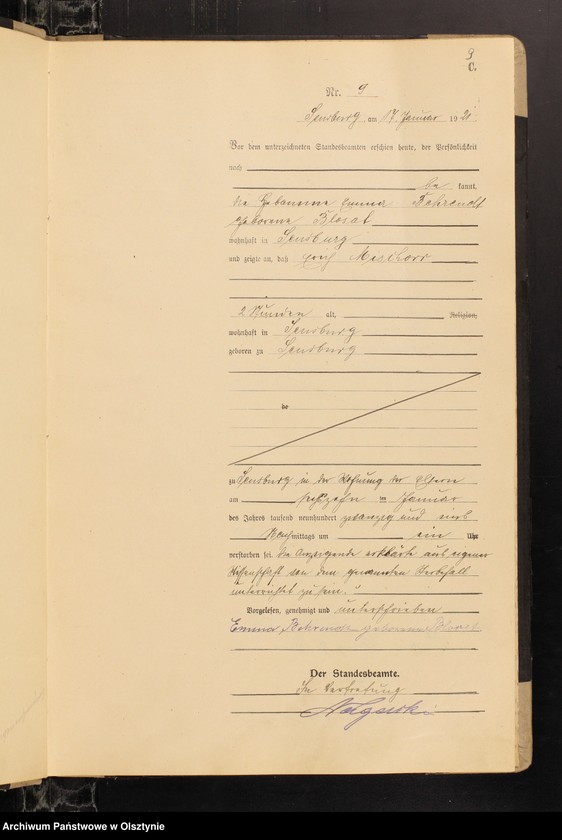 9
C.
Nr. 9
Sensburg am 17 Januar 1921.
Vor dem unterzeichneten Standesbeamten erschien heute, der Persönlichkeit
nach
be kannt,
die Hebamme Emma Behrendt
geborene Klosat
wohnhaft in Sensburg
und zeigte an, daß
2 Stunden alt, Religion,
wohnhaft in Sensburg
geboren zu Sensburg
de
zu Sensburg in der Wohnung der Eltern
am sechzehn ten Januar
des Jahres tausend neunhundert zwanzig und eins
Nachmittags um ein Uhr
verstorben sei. Die Anzeigende erklärte aus eigener
Wissenschaft von dem genannten Sterbefall
unterrichtet zu sein.
Vorgelesen, genehmigt und unterschrieben
Emma Behrendt geborene Klosat
Der Standesbeamte.
In Vertretung
Archiwum Państwowe w Olsztynie